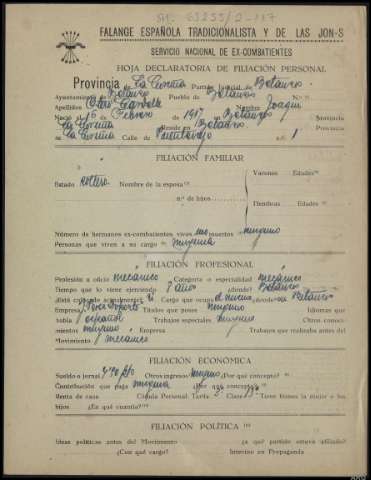 FALANGE ESPAÑOLA TRADICIONALISTA Y DE LAS JON-S
SERVICIO NACIONAL DE EX-COMBATIENTES
HOJA DECLARATORIA DE FILIACIÓN PERSONAL
Provincia de La Coruña Partido Judicial de Betanzos
Ayuntamiento de Betanzos Pueblo de Betanzos N.º
Apellidos Otero Nombre Joaquin
Nació el 16 de Febrero de 1917 en Betanzos Provincia
de La Coruña Reside en Betanzos Provincia
de La Coruña Calle de n.º 1
FILIACIÓN FAMILIAR
Estado soltero Nombre de la esposa
Varones Edades
n.º de hijos
Hembras Edades
Número de hermanos ex-combatientes vivos uno muertos ninguno
Personas que viven a su cargo ninguna
FILIACIÓN PROFESIONAL
Profesión u oficio mecánico Categoría o especialidad mecánico
Tiempo que lo viene ejerciendo 7 años ¿dónde? Betanzos
¿Está colocado actualmente? si Cargo que ocupa el mismo ¿dónde? en Betanzos
Empresa Títulos que posee ninguno Idiomas que
habla español Trabajos especiales ninguno Otros conoci-
mientos ninguno Empresa Trabajos que realizaba antes del
Movimiento mecánico
FILIACIÓN ECONÓMICA
Sueldo o jornal Otros ingresos ninguno ¿Por qué concepto?
Contribución que paga ninguna ¿Por qué concepto?
Renta de casa Cédula Personal Tarifa Clase Tiene bienes la mujer o los
hijos ¿En qué cuantía?
FILIACIÓN POLÍTICA
Ideas políticas antes del Movimiento ¿A qué partido estuvo afiliado?
¿Con qué cargo? Intervino en Propaganda